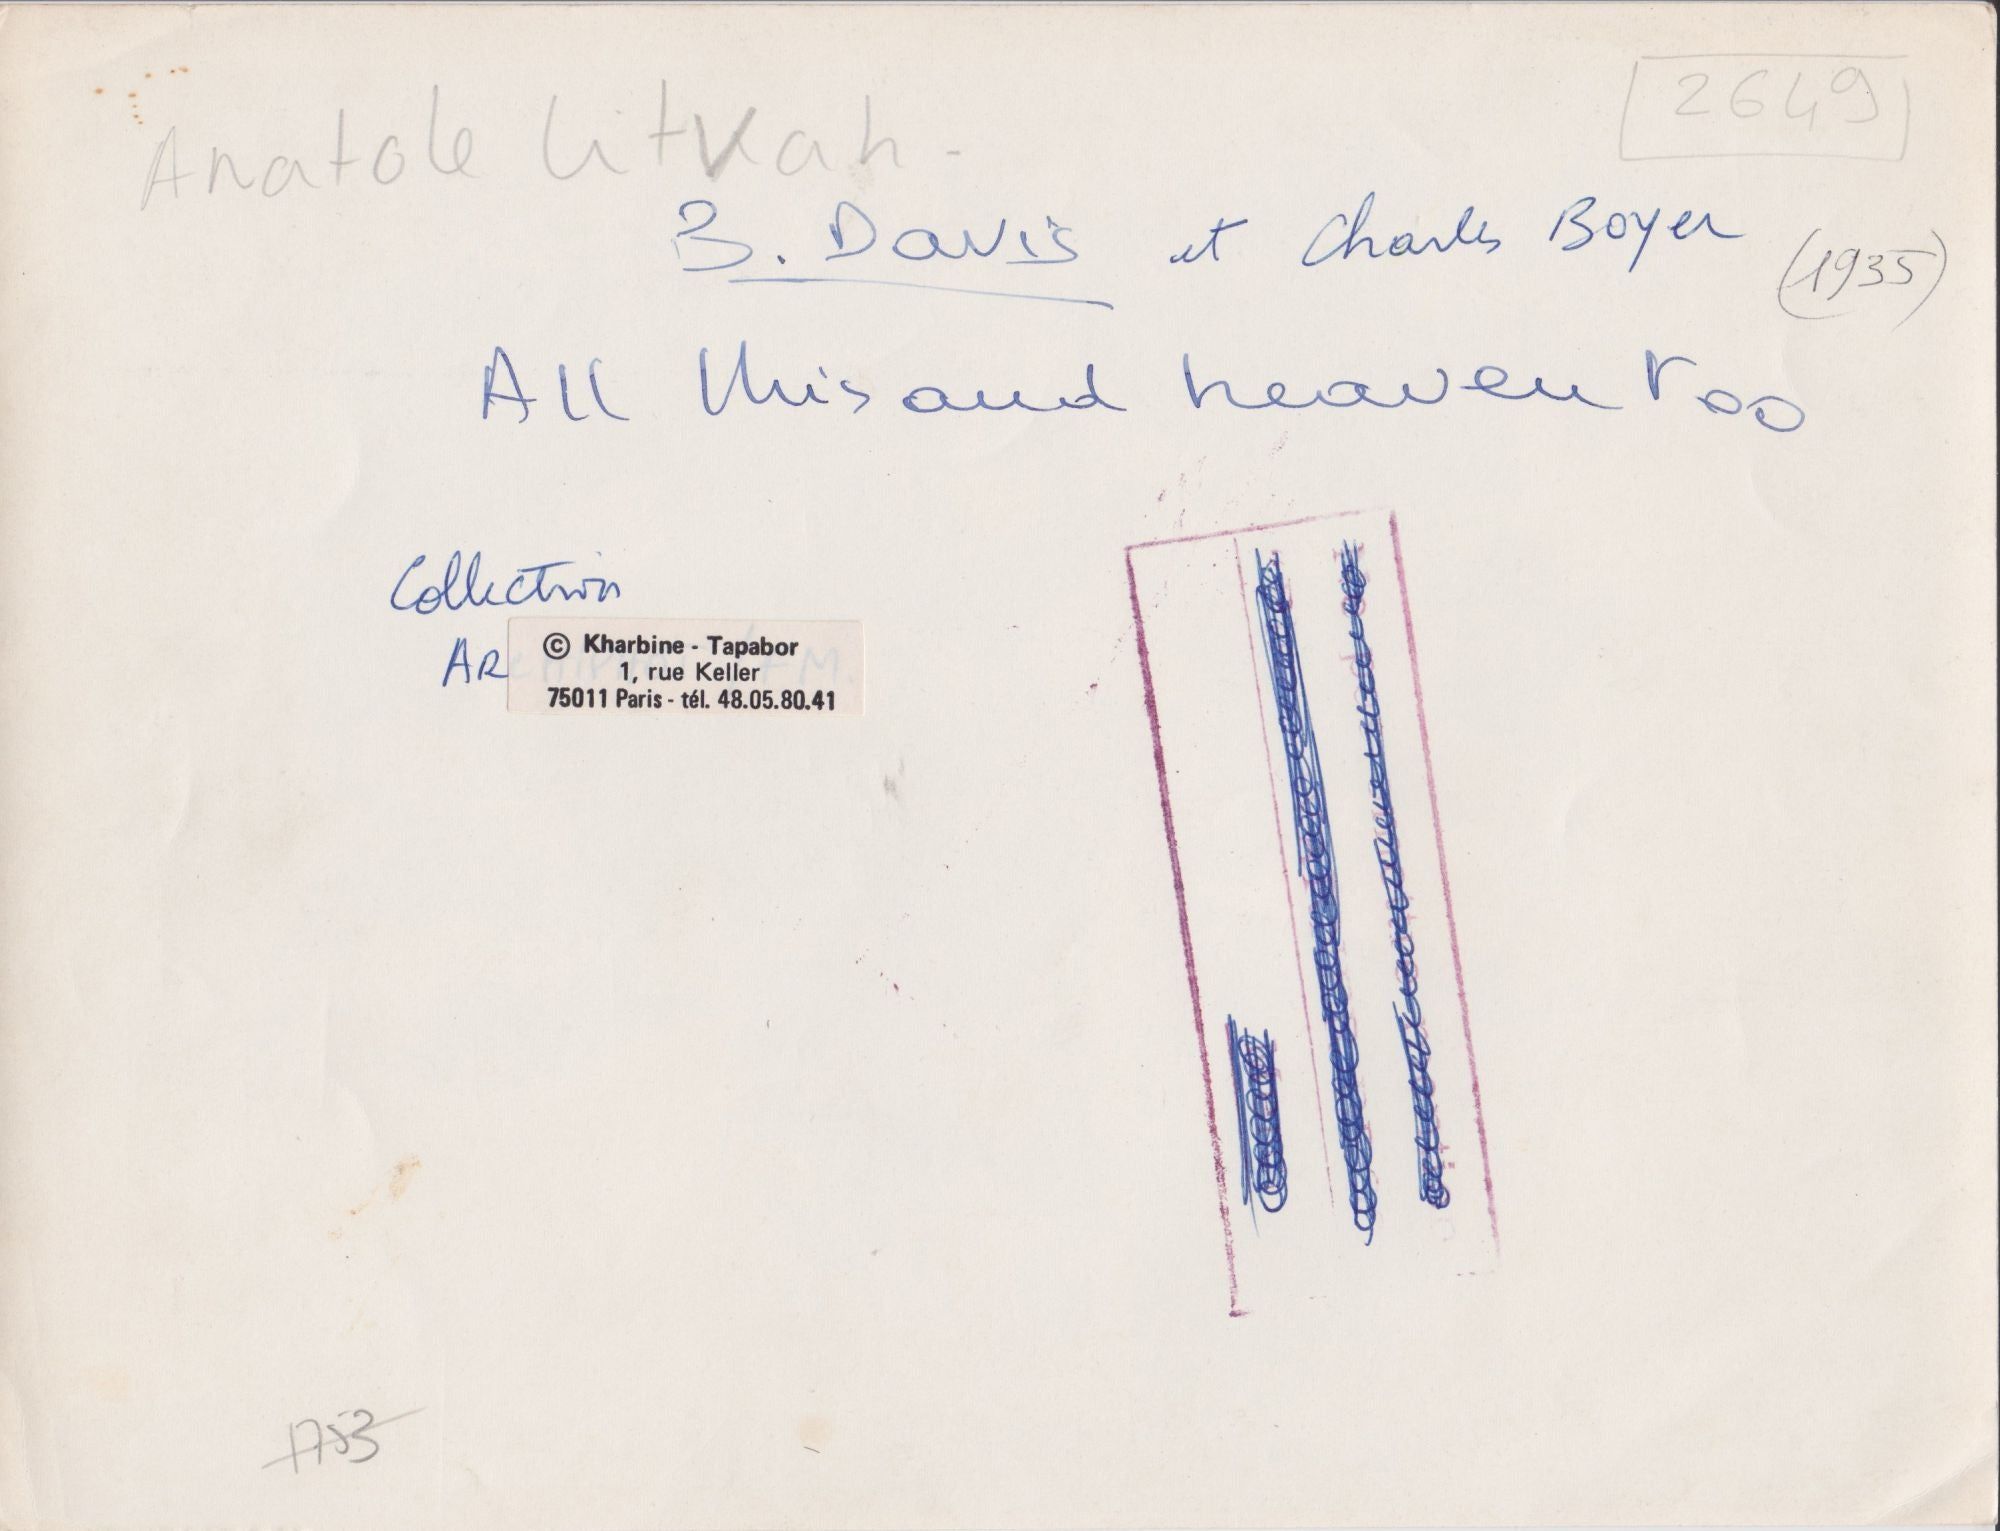 2649
Anatole Litvak -
B. Davis et Charles Boyer (1935)
All this and heaven Too
Collection
AR
© Kharbine - Tapabor
1, rue Keller
75011 Paris - tél. 48.05.80.41
1753